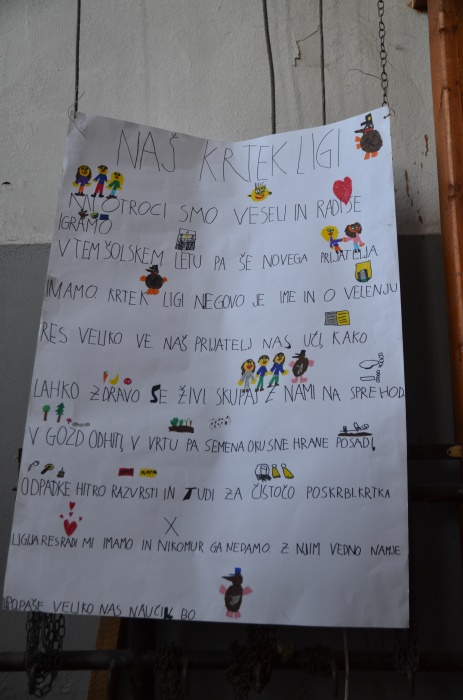 NAŠ KRTEK LIGI
MI OTROCI SMO VESELI IN RADI SE
IGRAMO
V TEM ŠOLSKEM LETU PA ŠE NOVEGA PRIJATELJA
IMAMO. KRTEK LIGI NEGOVO JE IME IN O VELENJU
RES VELIKO VE. NAŠ PRIJATELJ NAS UČI, KAKO
LAHKO ZDRAVO SE ŽIVI. SKUPAJ Z NAMI NA SPREHOD
V GOZD ODHITI, V VRTU PA SEMENA OKUSNE HRANE POSADI,
ODPADKE HITRO RAZVRSTI IN TUDI ZA ČISTOČO POSKRBI. KRTKA
LIGIJA RES RADI MI IMAMO IN NIKOMUR GA NE DAMO. Z NJIM VEDNO NAM JE
LEPO, PA ŠE VELIKO NAS NAUČIL BO